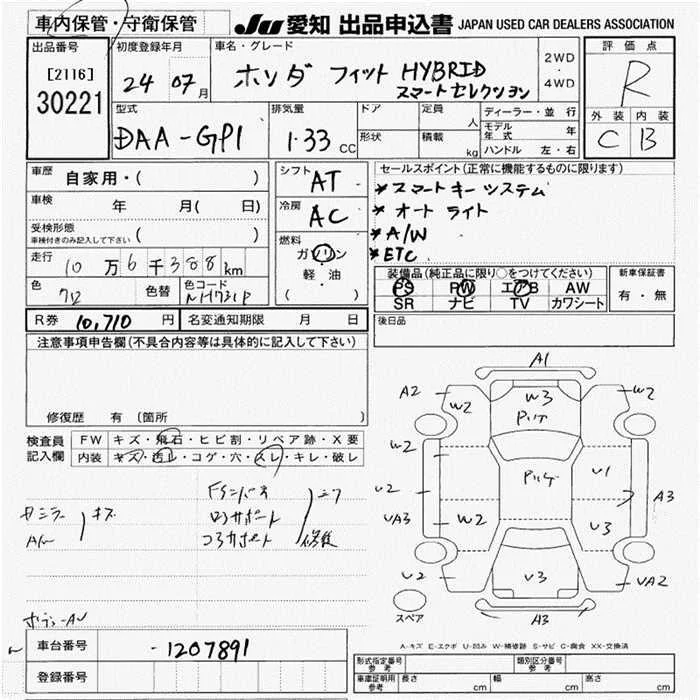 車内保管・守衛保管
JU 愛知 出品申込書 JAPAN USED CAR DEALERS ASSOCIATION
出品番号
[2116]
30221
初度登録年月
24 07月
車名・グレード
ホンダ フィット HYBRID
スマートセレクション
2WD
・
4WD
評価点
R
外装 内装
C B
型式
DAA-GP1
排気量
1.33 CC
ドア
定員
人
形状
積載
kg
ディーラー・並行
モデル年式 年
ハンドル 左・右
車歴
自家用・( )
車検
年 月( 日)
受検形態
車検付きのみ記入して下さい ( )
走行
10万6千388km
色
色替
色コード
NH731P
シフト
AT
冷房
AC
燃料
ガソリン
・
軽・油
( )
セールスポイント(正常に機能するものに限ります)
*スマートキーシステム
*オートライト
*A/W
*ETC
装備品(純正品に限り○をつけてください)
PS PW エアB AW
SR ナビ TV カワシート
新車保証書
有・無
後日品
R券 10,710 円
名変通知期限 月 日
注意事項申告欄(不具合内容等は具体的に記入して下さい)
修復歴 有 (箇所 )
検査員
記入欄
FW キズ・飛石・ヒビ割・リペア跡・X要
内装 キズ・汚レ・コゲ・穴・スレ・キレ・破レ
キズ
ロアサポート
コアサポート
修復
A1
A2
W2
W3
W2
W2
U2
VA3
W2
U1
A3
U3
U2
U3
UA2
A3
スペア
A-キズ E-エクボ U-凹み W-補修跡 S-サビ C-腐食 XX-交換済
車台番号
-1207891
登録番号
形式指定番号
参考
類別区分番号
参考
車庫証明用
参考
長さ cm 幅 cm 高さ cm